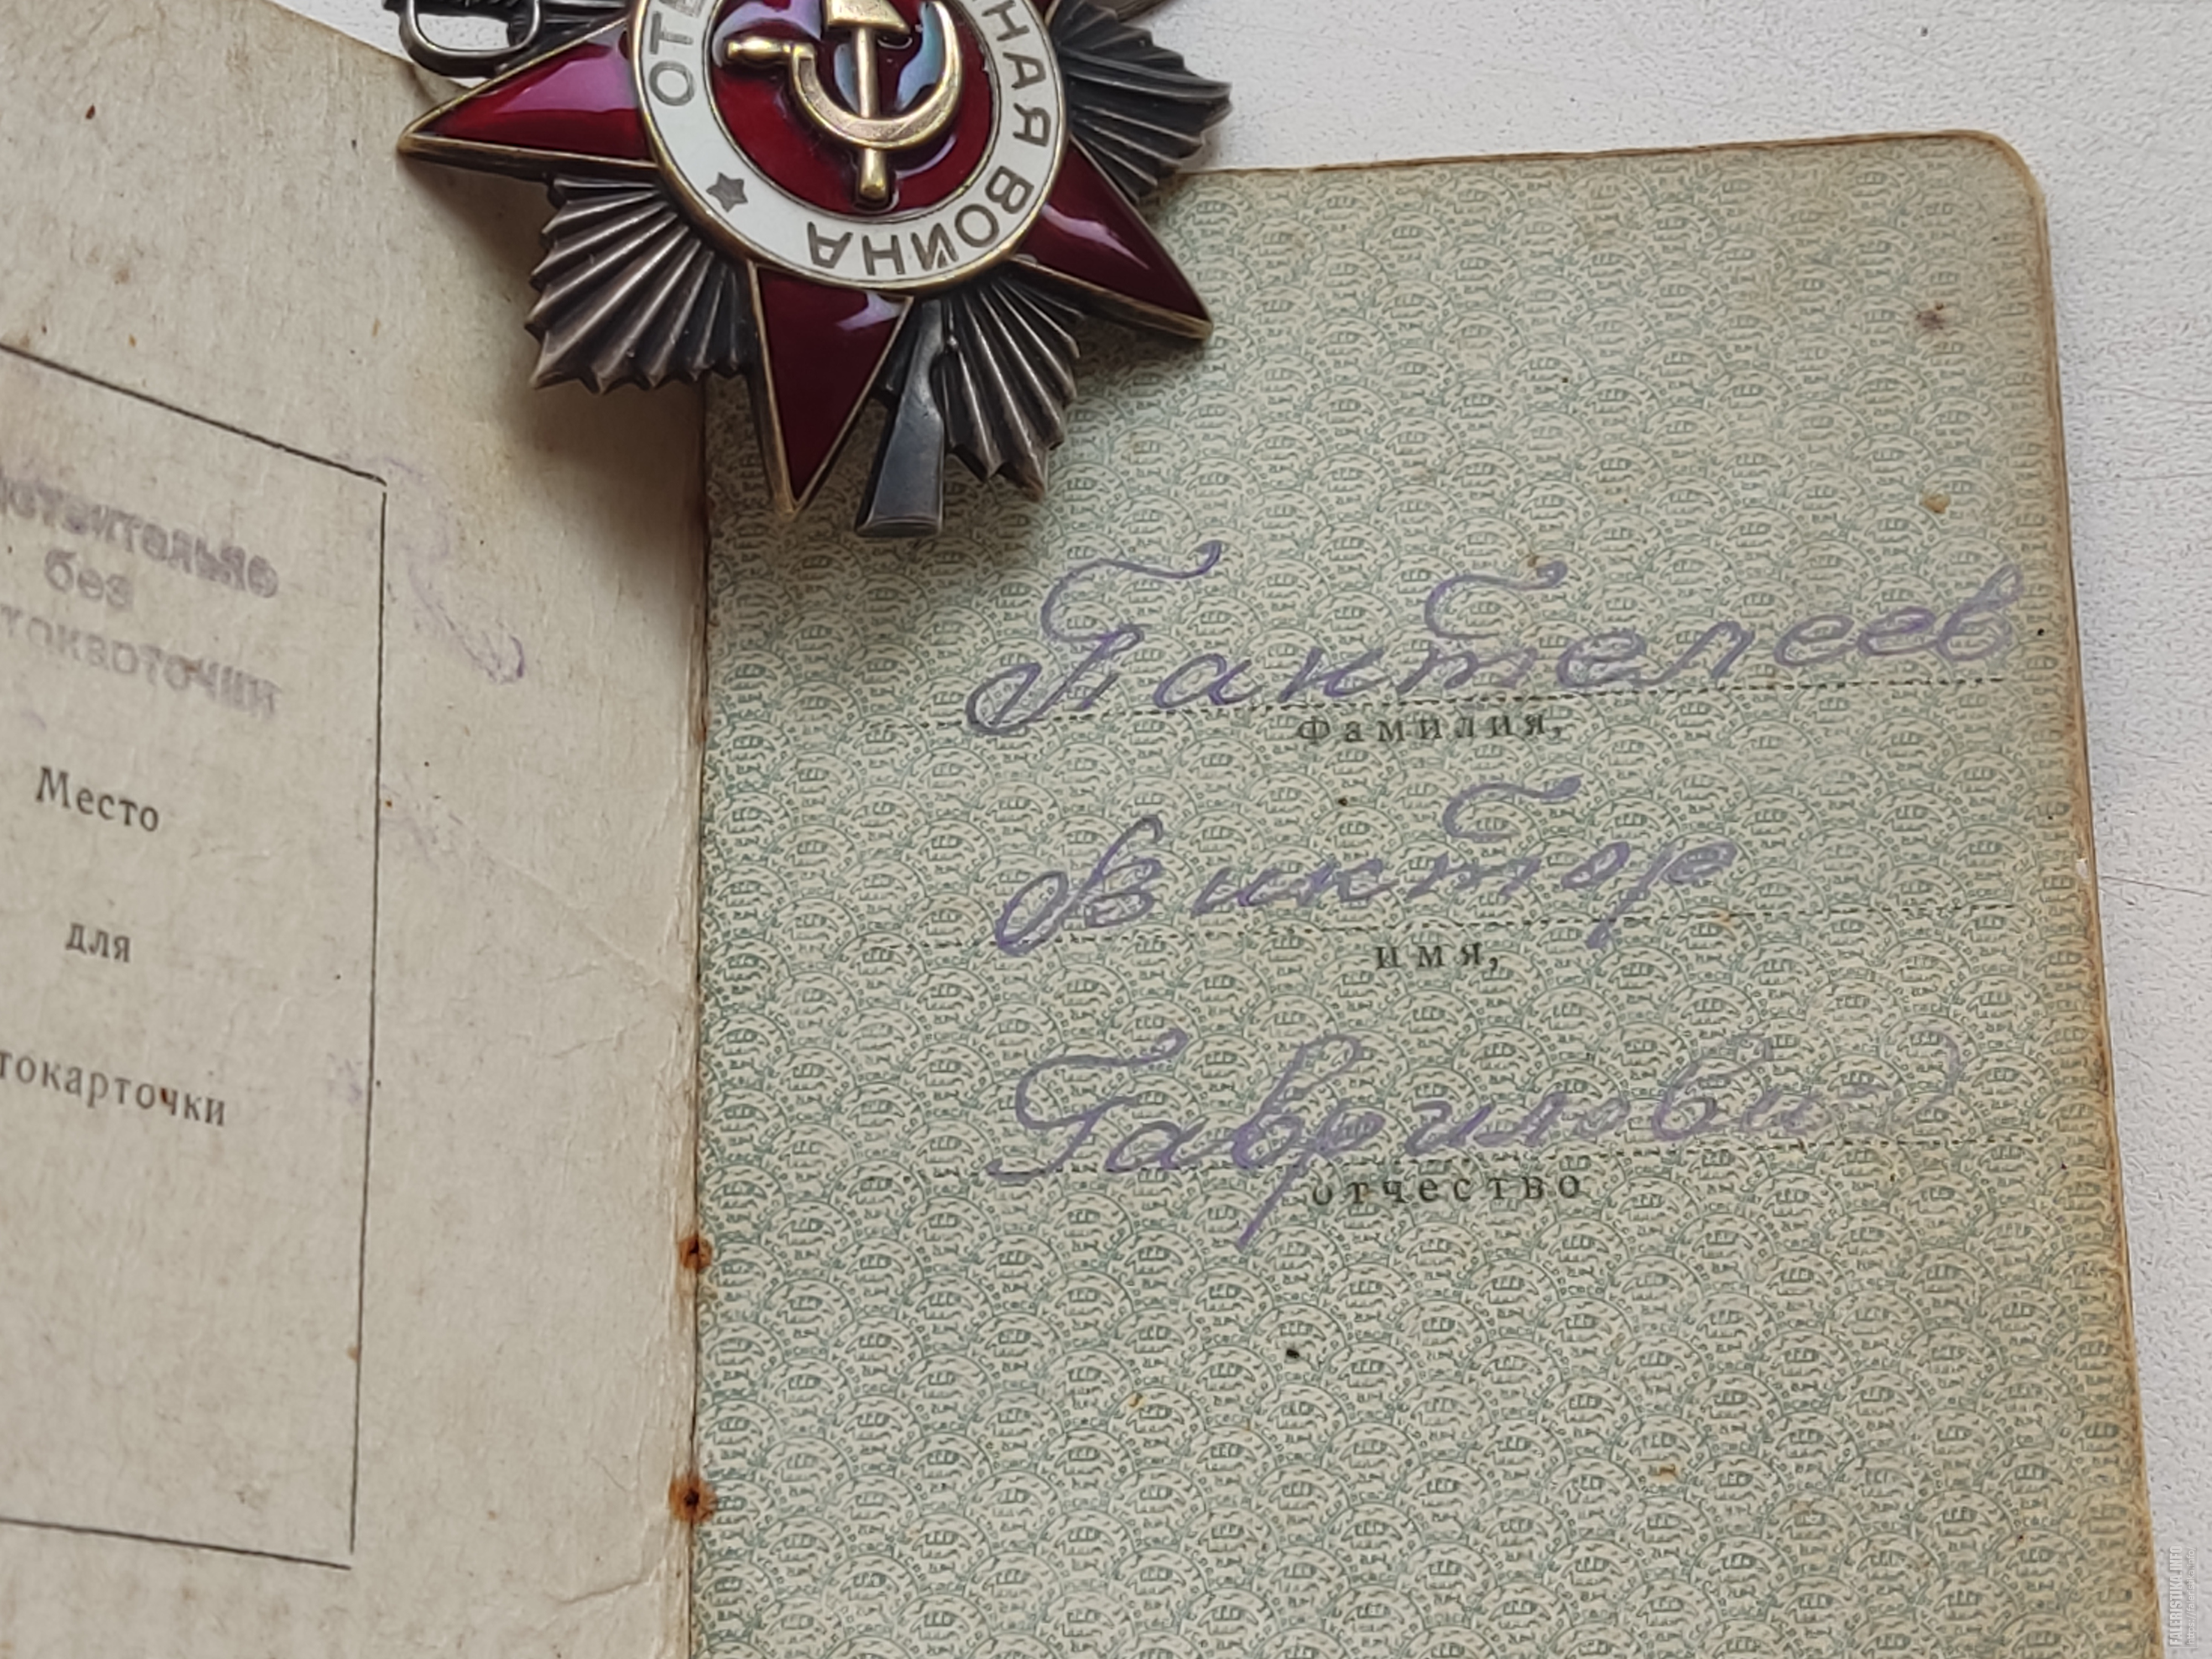 ОТЕ НАЯ ВОЙНА
йствительно
без
токарточки
Место
для
токарточки
Пантелеев
Фамилия,
Виктор
имя,
Гаврилович
отчество
FALERISTIKA.INFO